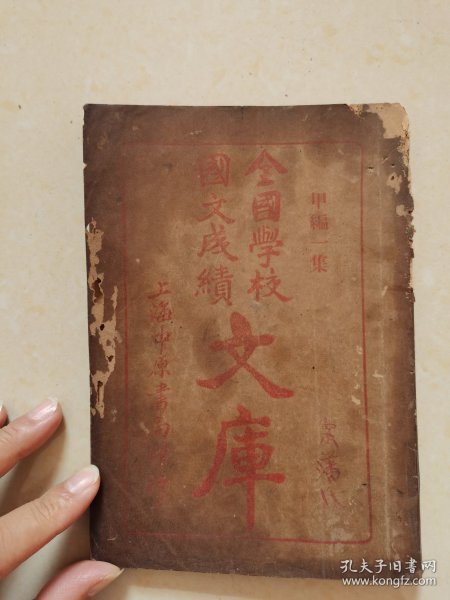 甲編一集
全國學校
國文成績
文庫
上海中原書局
孔夫子旧书网
www.kongfz.com